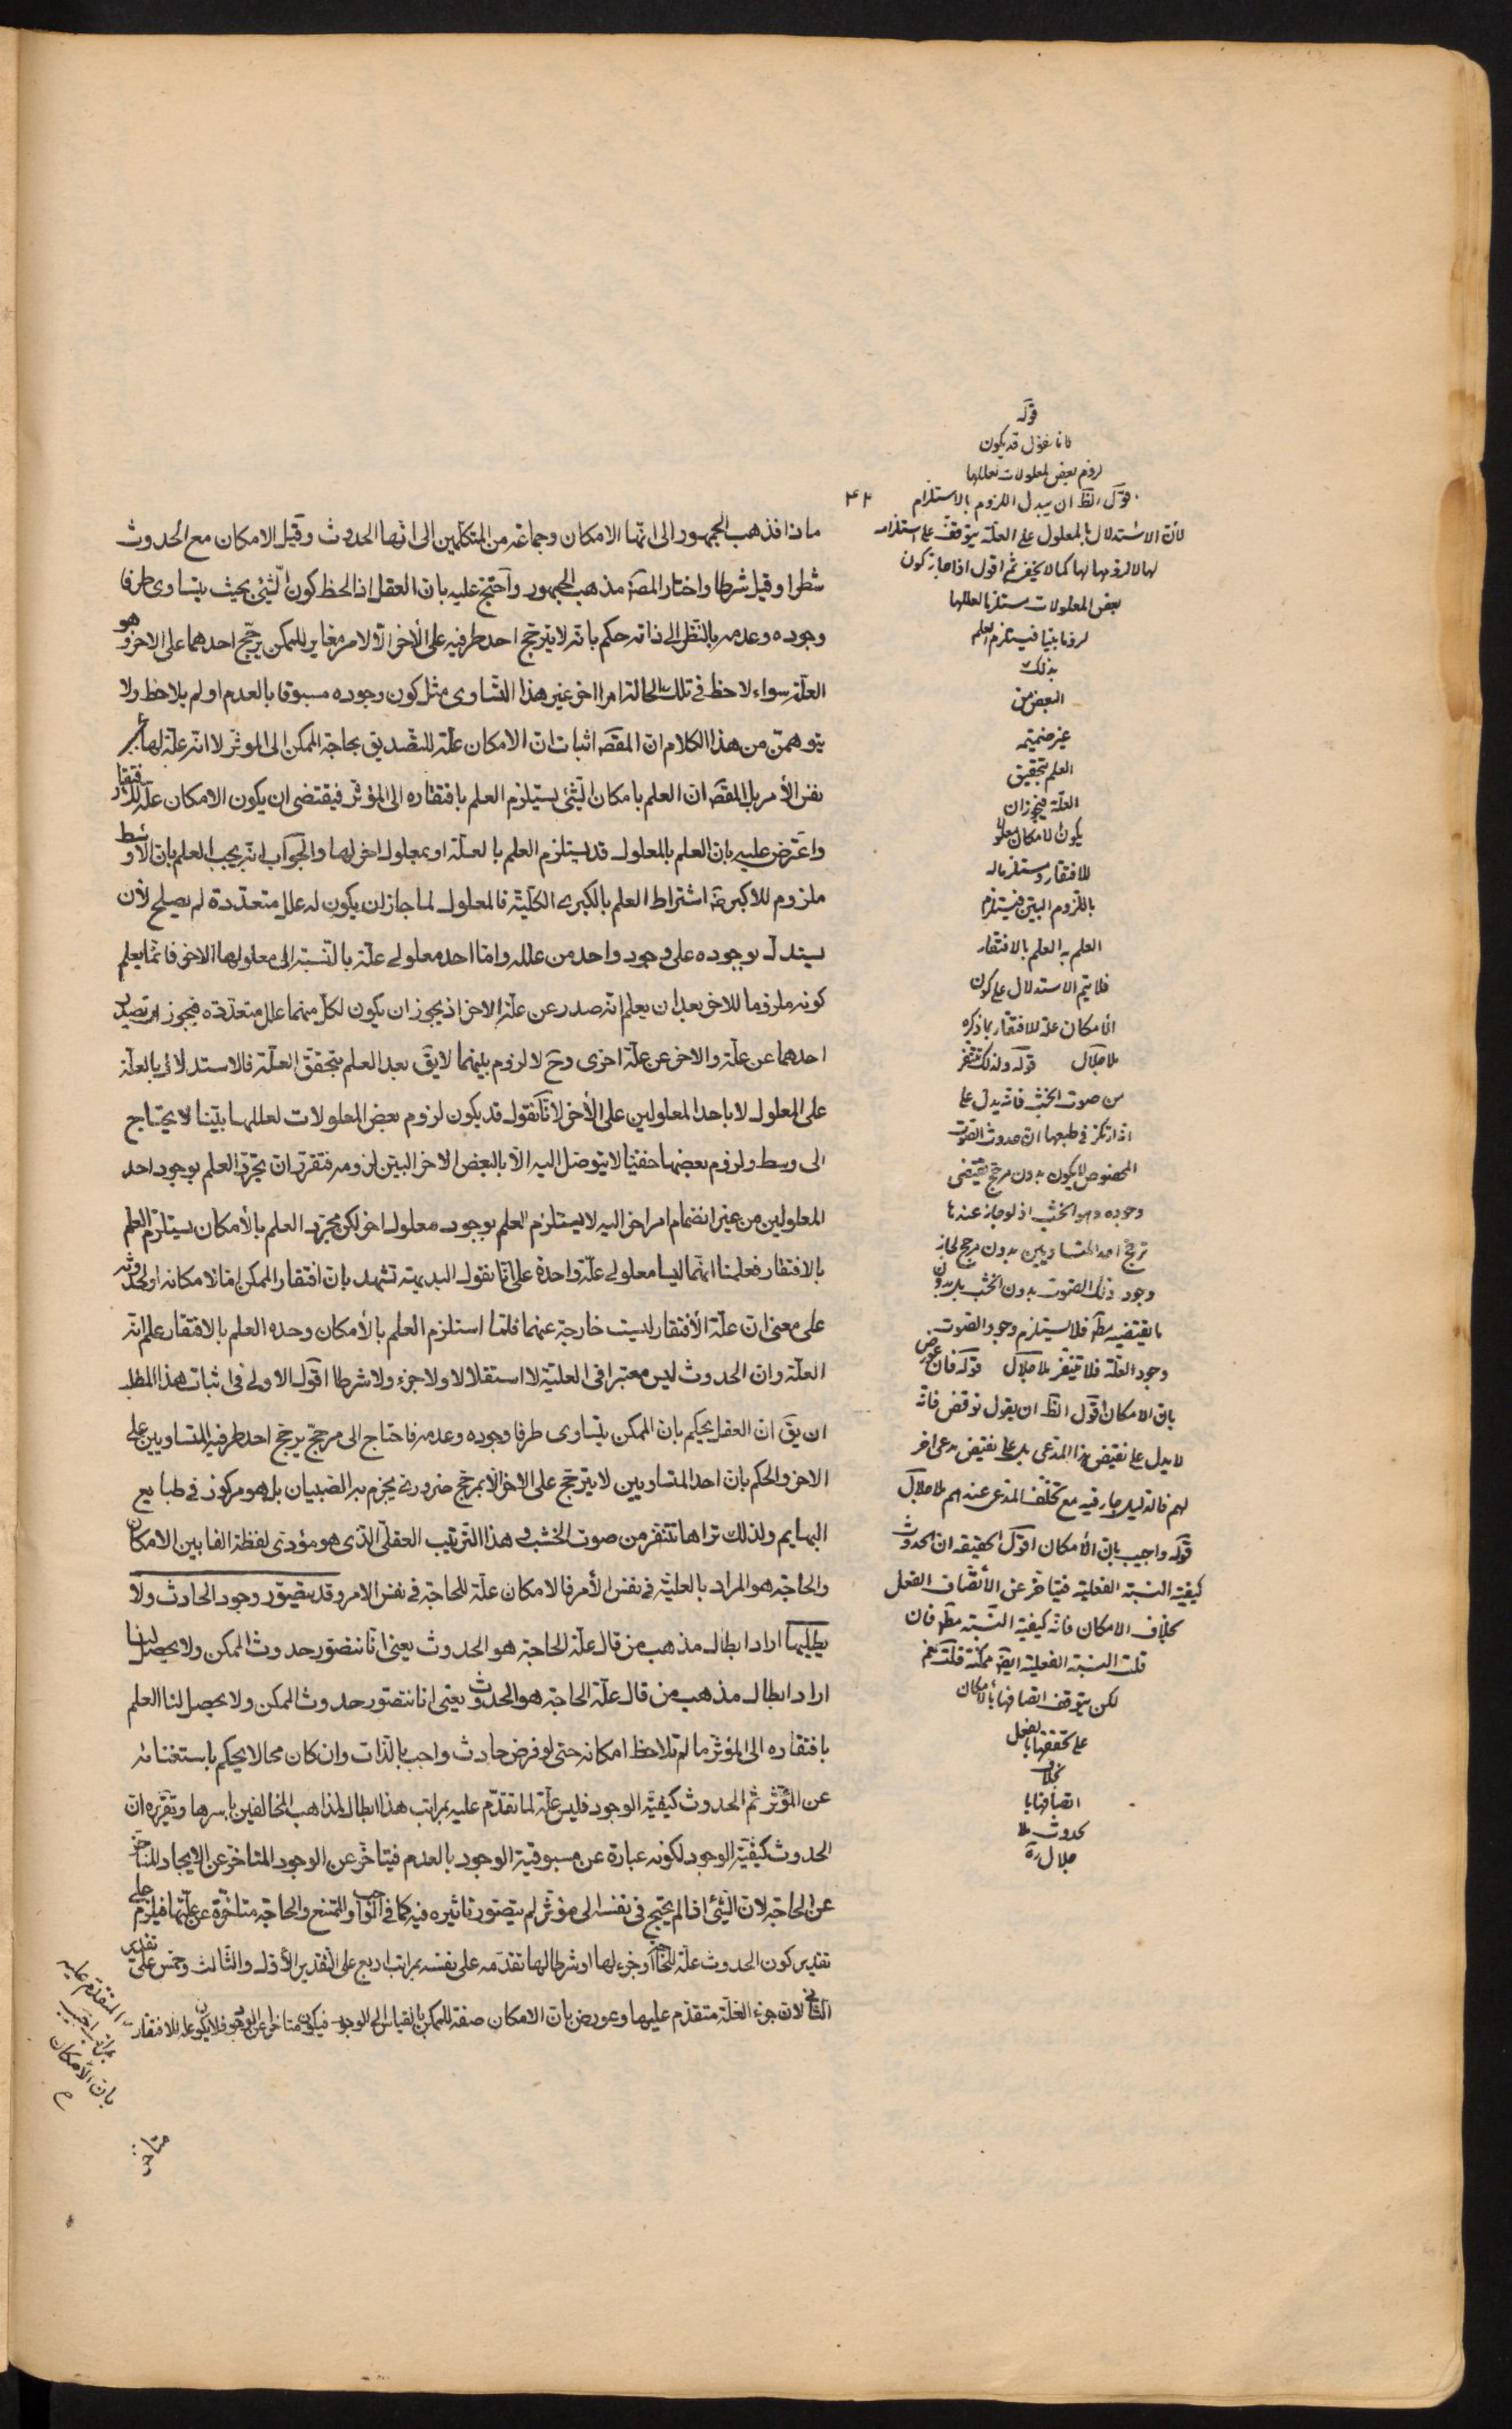 ماذا فذهب الجمهور الى انها الامكان وجماعة من المتكلمين الى انها الحدوث وقيل الامكان مع الحدوث
شطرا وقيل شرطا واختار المصنف مذهب الجمهور واحتج عليه بان العقل اذا لحظ كون الشئ بحيث يتساوى طرفا
وجوده وعدمه بالنظر الى ذاته حكم بانه لا يترجح احد طرفيه على الاخر الا لامر مغاير للممكن يرجح احدهما على الاخر وهو
العلة سواء لاحظ فى تلك الحالة امرا اخر غير هذا التساوى مثل كون وجوده مسبوقا بالعدم او لم يلاحظ ولا
يتوهمن من هذا الكلام ان المقصود اثبات ان الامكان علة للتصديق بحاجة الممكن الى المؤثر لا انه علة لها
نفس الأمر بل المقصود ان العلم بامكان الشئ يستلزم العلم بافتقاره الى المؤثر فيقتضى ان يكون الامكان علة للافتقار
واعترض عليه بان العلم بالمعلول قد يستلزم العلم بالعلة او بمعلول اخر لها والجواب انه يجب العلم بان الاوسط
ملزوم للاكبر اشتراط العلم بالكبرى الكلية فالمعلول لما جاز ان يكون له علل متعددة لم يصلح لأن
يستدل بوجوده على وجود واحد من علله واما احد معلولى علة بالنسبة الى معلولها الاخر فانما يعلم
كونه ملزوما للاخر بعد ان يعلم انه صدر عن علة الاخر اذ يجوز ان يكون لكل منهما علل متعددة فيجوز ان يصدر
احدهما عن علة والاخر عن علة اخرى وح لا لزوم بينهما لا يق بعد العلم بتحقق العلة فالاستدلال بالعلة
على المعلول لا باحد المعلولين على الأخر لانا نقول قد يكون لزوم بعض المعلولات لعللها بينا لا يحتاج
الى وسط ولزوم بعضها خفيا لا يتوصل اليه الا بالبعض الاخر البين لزومه فتقرر ان مجرد العلم بوجود احد
المعلولين من غير انضمام امر اخر اليه لا يستلزم العلم بوجود معلول اخر لكن مجرد العلم بالأمكان يستلزم العلم
بالافتقار فعلمنا انهما ليسا معلولى علة واحدة على انا نقول البديهة تشهد بان افتقار الممكن اما لامكانه او لحدوثه
على معنى ان علة الأفتقار ليست خارجة عنهما فلما استلزم العلم بالأمكان وحده العلم بالافتقار علم انه
العلة وان الحدوث ليس معتبرا فى العلية لا استقلالا ولا جزء ولا شرطا اقول الاولى فى اثبات هذا المطلب
ان يق ان العقل يحكم بان الممكن يتساوى طرفا وجوده وعدمه فاحتاج الى مرجح يرجح احد طرفيه المتساويين على
الاخر والحكم بان احد المتساويين لا يترجح على الاخر الا بمرجح ضرورى يجزم به الصبيان بل هو مركوز فى طبايع
البهايم ولذلك تراها تتنفر من صوت الخشب وهذا الترتيب العقلى الذى هو مؤدى لفظة الفا بين الامكان
والحاجة هو المراد بالعلية فى نفس الأمر فالامكان علة للحاجة فى نفس الامر وقد يتصور وجود الحادث ولا
يطلبها اراد ابطال مذهب من قال علة الحاجة هو الحدوث يعنى انا نتصور حدوث الممكن ولا يحصل لنا
اراد ابطال مذهب من قال علة الحاجة هو الحدوث يعنى انا نتصور حدوث الممكن ولا يحصل لنا العلم
بافتقاره الى المؤثر ما لم نلاحظ امكانه حتى لو فرض حادث واجب بالذات وان كان محالا يحكم باستغنائه
عن المؤثر ثم الحدوث كيفية الوجود فليس علة لما تقدم عليه بمراتب هذا ابطال لمذاهب المخالفين باسرها وتقريره ان
الحدوث كيفية الوجود لكونه عبارة عن مسبوقية الوجود بالعدم فيتأخر عن الوجود المتأخر عن الايجاد المتأخر
عن الحاجة لان الشئ اذا لم يحتج فى نفسه الى مؤثر لم يتصور تاثيره فيه كما فى الواجب والممتنع والحاجة متأخرة عن علتها فيلزم على
تقدير كون الحدوث علة للحاجة او جزء لها او شرطا لها تقدمه على نفسه بمراتب اربع على التقدير الأول والثالث وخمس على تقدير
الثانى لان جزء العلة متقدم عليها وعورض بان الامكان صفة للممكن بالقياس الى الوجود فيكون متاخرا عن الوجود فلا يكون علة للافتقار
المتقدم عليه
بمراتب اجيب
بان الامكان
متاخر
۴۲
قوله
فانا نقول قد يكون
لزوم بعض المعلولات لعللها
اقول الظ ان يبدل اللزوم بالاستلزام
لان الاستدلال بالمعلول على العلة يتوقف على استلزامه
لها لا لزومها لها كما لا يخفى ثم اقول اذا جاز كون
بعض المعلولات مستلزما لعللها
لزوما بينا فيستلزم العلم
بذلك
البعض من
غير ضميمة
العلم بتحقق
العلة فيجوز ان
يكون الامكان معلولا
للافتقار ومستلزما له
باللزوم البين فيستلزم
العلم به العلم بالافتقار
فلا يتم الاستدلال على كون
الامكان علة للافتقار بما ذكره
ملا جلال قوله ولذلك تتنفر
من صوت الخشب فانه يدل على
اذ ارتكز فى طبعها ان حدوث الصوت
المخصوص لا يكون بدون مرجح يقتضى
وجوده وهو الخشب اذ لو جاز عندها
ترجح احد المتساويين بدون مرجح لجاز
وجود ذلك الصوت بدون الخشب بل بدون
ما يقتضيه مطلقا فلا يستلزم وجود الصوت
وجود العلة فلا تتنفر ملا جلال قوله فان عورض
بان الامكان اقول الظ ان يقول نوقض فانه
لا يدل على نقيض هذا المدعى بل على نقيض مدعى اخر
لهم فالدليل جار فيه مع تخلف المدعى عندهم ملا جلال
قوله واجيب بان الأمكان اقول الحقيقة ان الحدوث
كيفية النسبة الفعلية فيتأخر عن الأتصاف الفعل
بخلاف الامكان فانه كيفية النسبة مطلقا فان
قلت النسبة الفعلية ايضا ممكنة قلت نعم
لكن يتوقف اتصافها بالامكان
على تحققها بالفعل
بخلاف
اتصافها با
لحدوث ملا
جلال ره